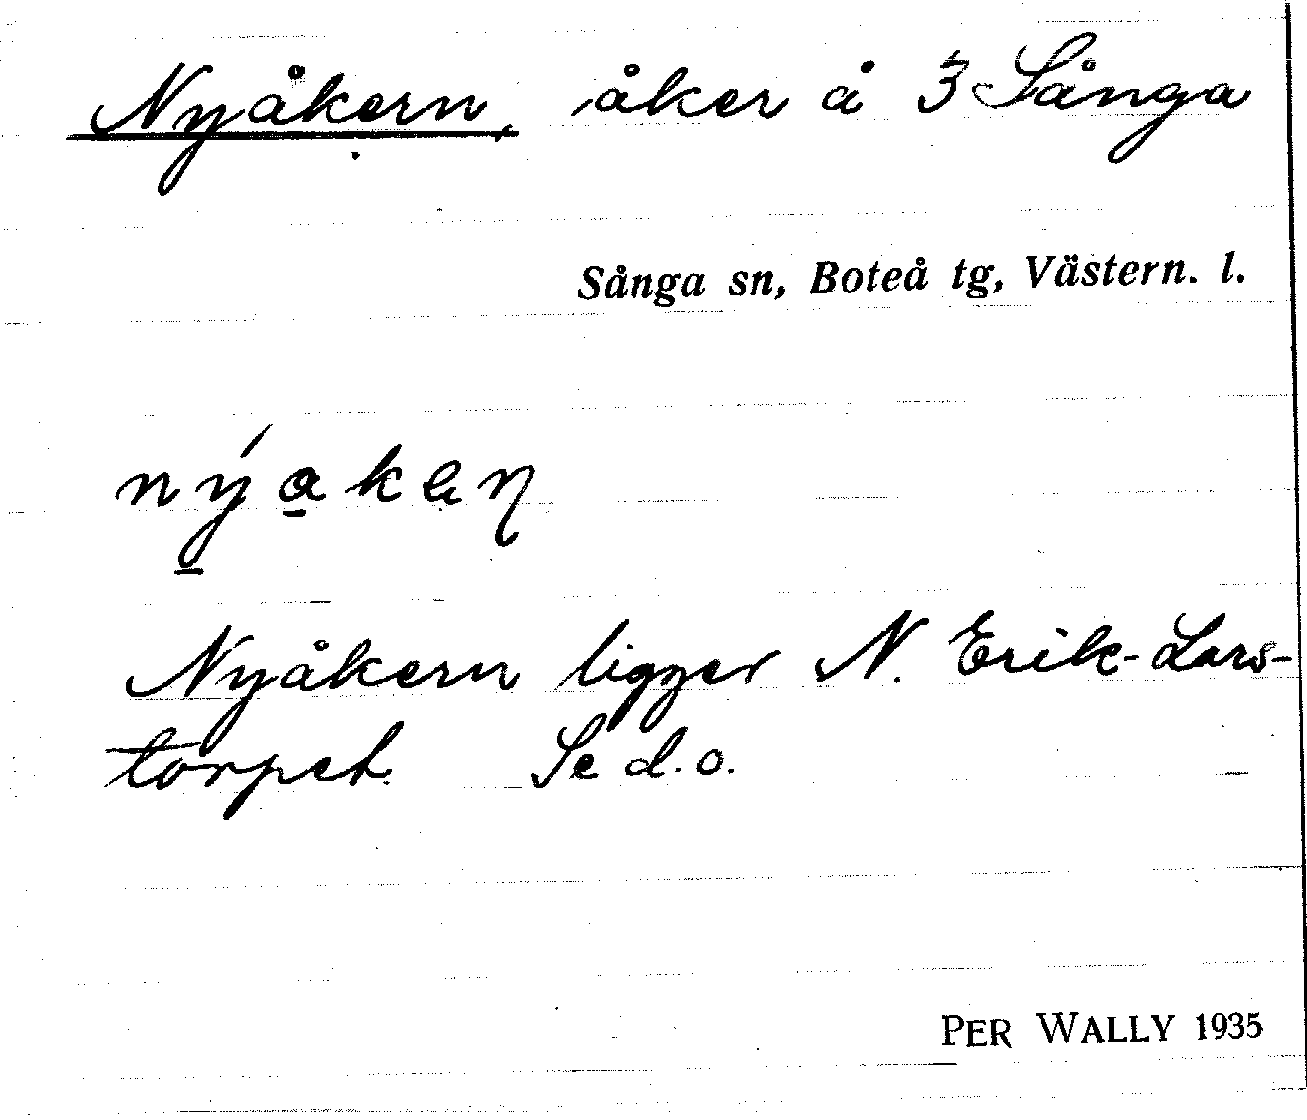 Nyåkern, åker å 3 Sånga
Sånga sn, Boteå tg, Västern. l.
nýa̲kaɳ
Nyåkern ligger N. Erik-Lars-
torpet. Se d.o.
PER WALLY 1935